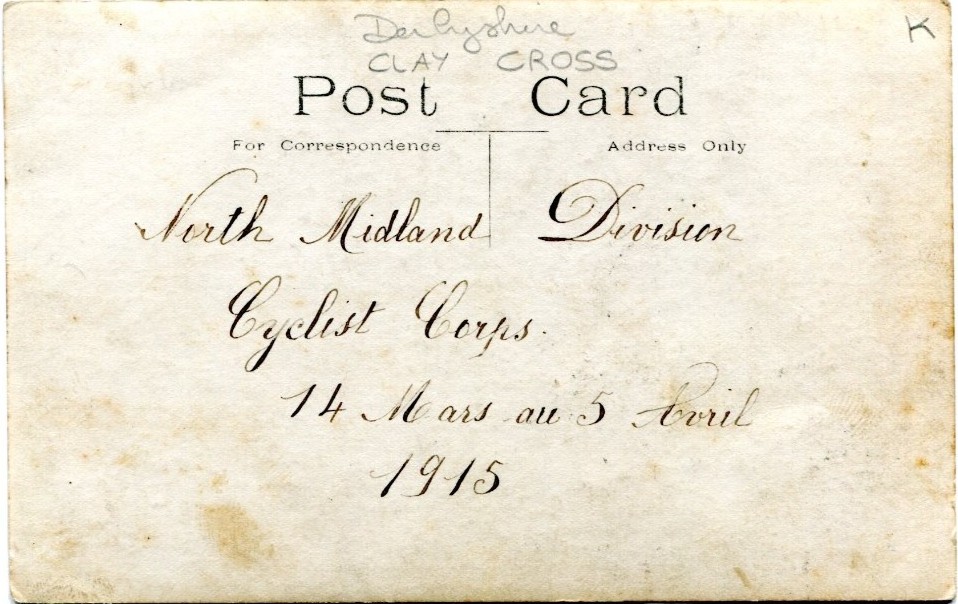 Derbyshire
K
CLAY CROSS
Post Card
For Correspondence
Address Only
North Midland Division
Cyclist Corps.
14 Mars au 5 Avril
1915